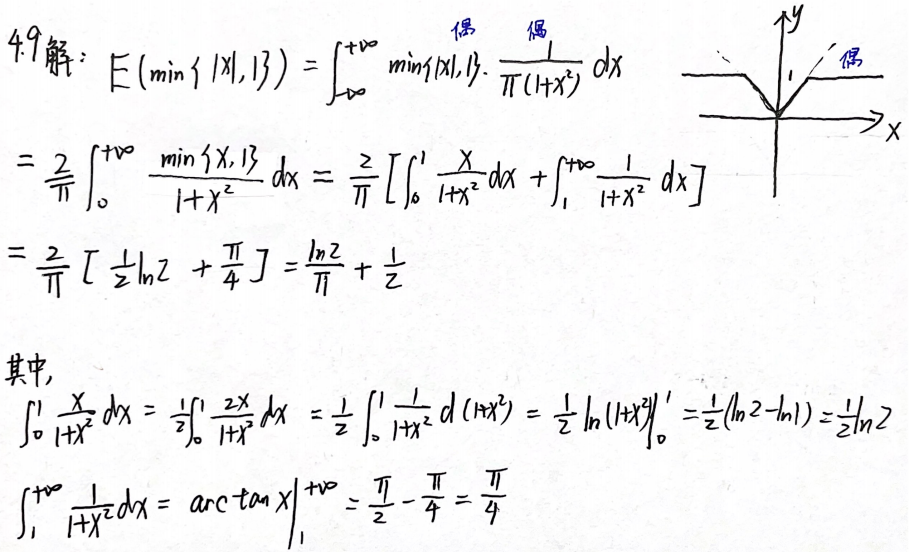 偶 偶
4.9解： E(min{|X|,1}) = ∫_{-∞}^{+∞} min{|x|,1}· 1/(π(1+x²)) dx
y
偶
1
x
= 2/π ∫_0^{+∞} min{x,1}/(1+x²) dx = 2/π [∫_0^1 x/(1+x²) dx + ∫_1^{+∞} 1/(1+x²) dx]
= 2/π [ 1/2 ln2 + π/4 ] = ln2/π + 1/2
其中,
∫_0^1 x/(1+x²) dx = 1/2 ∫_0^1 2x/(1+x²) dx = 1/2 ∫_0^1 1/(1+x²) d(1+x²) = 1/2 ln(1+x²)|_0^1 = 1/2(ln2-ln1) = 1/2 ln2
∫_1^{+∞} 1/(1+x²) dx = arc tan x|_1^{+∞} = π/2 - π/4 = π/4